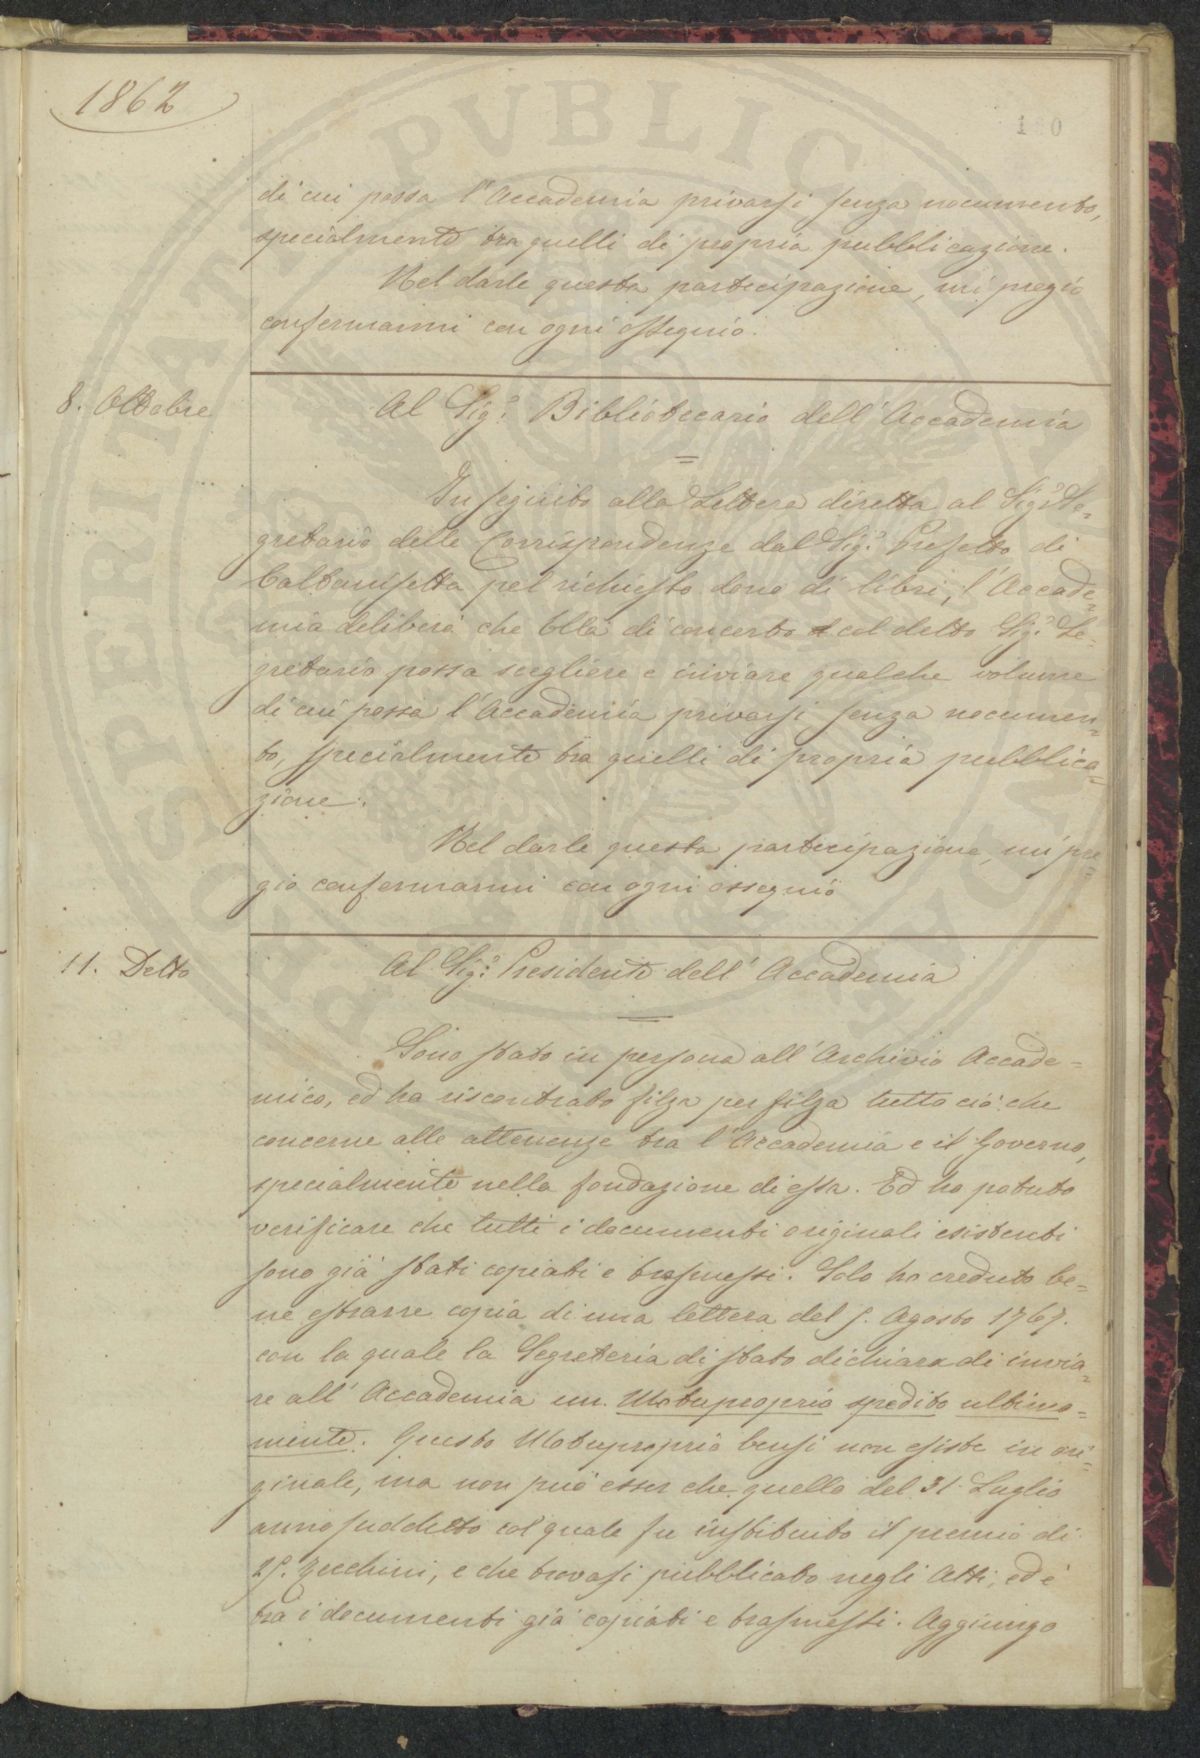 1862
di cui possa l'Accademia privarsi senza nocumento,
specialmente tra quelli di propria pubblicazione.
Nel darle questa partecipazione, mi pregio
confermarmi con ogni ossequio.
8. Ottobre
Al Sig.r Bibliotecario dell'Accademia
In seguito alla Lettera diretta al Sig.r Se=
gretario delle Corrispondenze dal Sig.r Prefetto di
Caltanisetta pel richiesto dono di libri, l'Accade=
mia deliberò che Ella di concerto col detto Sig.r Se=
gretario possa scegliere e inviare qualche volume
di cui possa l'Accademia privarsi senza nocumen=
to, specialmente tra quelli di propria pubblica=
zione.
Nel darle questa partecipazione, mi pre
gio confermarmi con ogni ossequio
11. Detto
Al Sig.r Presidente dell'Accademia
Sono stato in persona all'Archivio Accade=
mico, ed ho riscontrato filza per filza tutto ciò che
concerne alle attenenze tra l'Accademia e il Governo,
specialmente nella fondazione di essa. Ed ho potuto
verificare che tutti i documenti originali esistenti
sono già stati copiati e trasmessi. Solo ho creduto be=
ne estrarre copia di una lettera del 5. Agosto 1767.
con la quale la Segreteria di stato dichiara di invia=
re all'Accademia un Motuproprio spedito ultima=
mente. Questo Motuproprio bensì non esiste in ori=
ginale, ma non può esser che quello del 31. Luglio
anno suddetto col quale fu instituito il premio di
25. zecchini, e che trovasi pubblicato negli Atti, ed è
tra i documenti già copiati e trasmessi. Aggiungo